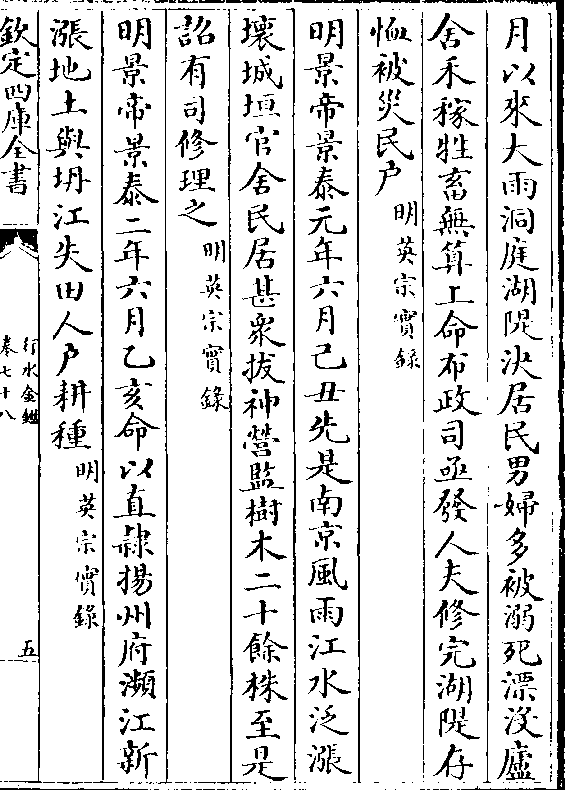 月以來大雨洞庭湖隄決居民男婦多被溺死漂沒廬
舍禾稼牲畜無算上命布政司亟發人夫修完湖隄存
恤被災民户明英宗實錄
明景帝景泰元年六月己丑先是南京風雨江水泛漲
壞城垣官舍民居甚衆拔神營監樹木二十餘株至是
詔有司修理之明英宗實錄
明景帝景泰二年六月乙亥命以直隸揚州府瀕江新
漲地土與坍江失田人户耕種明英宗實錄
欽定四庫全書
行水金鑑
卷七十八
五